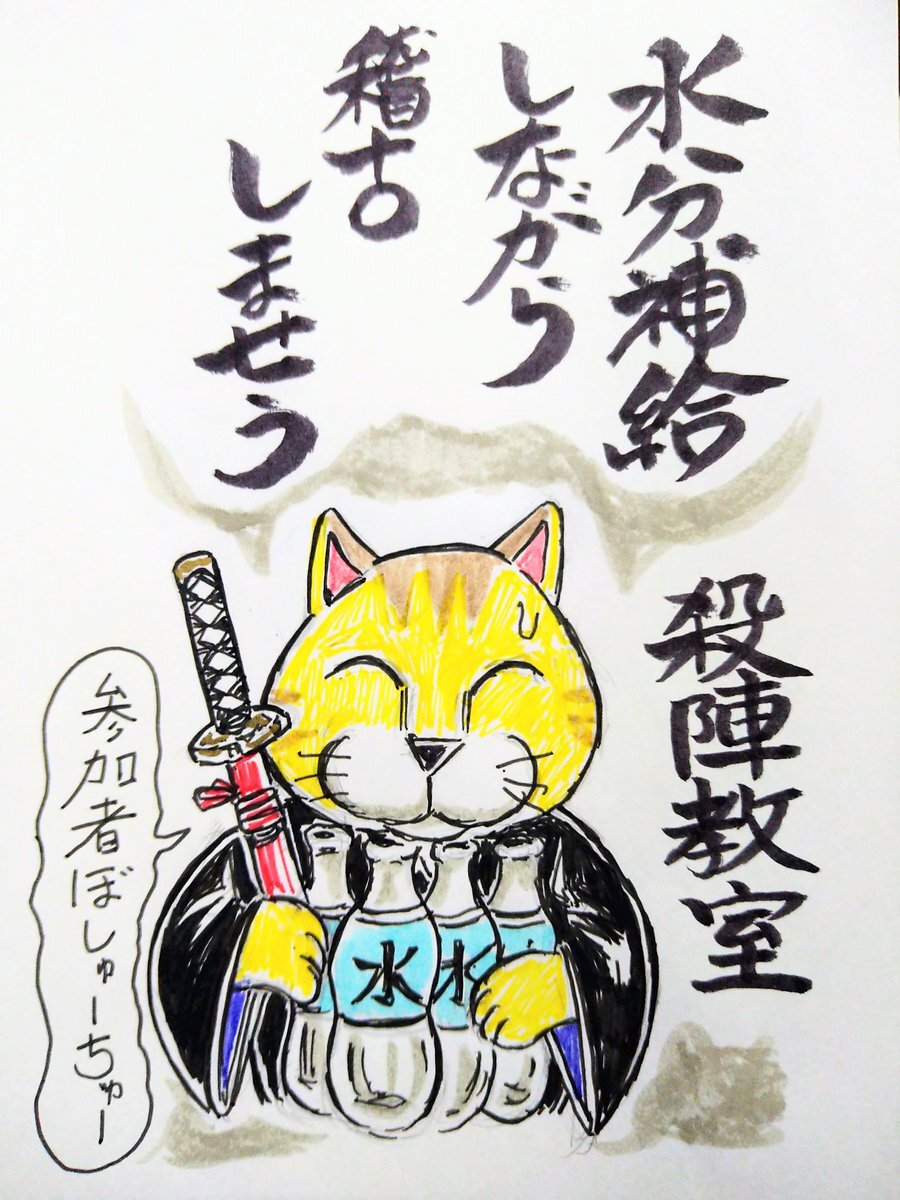 水分補給
しながら
稽古
しませう
殺陣教室
参加者ぼしゅーちゅー
水
水